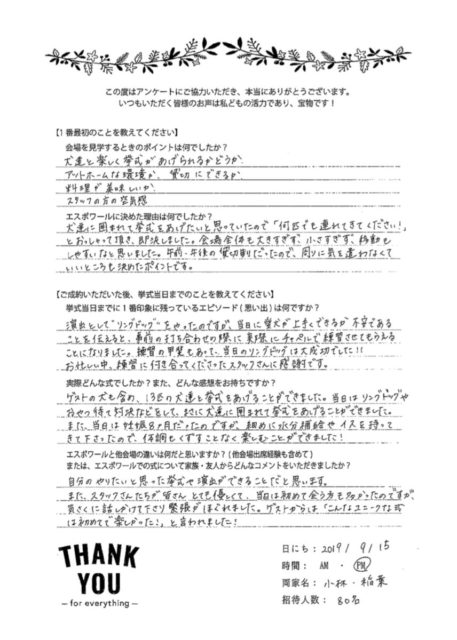 この度はアンケートにご協力いただき、本当にありがとうございます。
いつもいただく皆様のお声は私どもの活力であり、宝物です！
【1番最初のことを教えてください】
会場を見学するときのポイントは何でしたか？
犬達と楽しく挙式があげられるかどうか
アットホームな環境か、貸切にできるか
料理が美味しいか
スタッフの方の空気感
エスポワールに決めた理由は何でしたか？
犬達に囲まれて挙式をあげたいと思っていたので「何匹でも連れてきてください！」
とおっしゃって頂き、即決しました。会場全体も大きすぎず、小さすぎず、移動も
しやすいなと思いました。午前・午後の貸切制だったので、周りに気を遣わなくて
いいところも決めたポイントです。
【ご成約いただいた後、挙式当日までのことを教えてください】
挙式当日までに1番印象に残っているエピソード（思い出）は何ですか？
演出として"リングドッグ"をやったのですが、当日に愛犬が上手くできるか不安である
ことを伝えると、事前の打ち合わせの際に実際にチャペルで練習させてもらえる
ことになりました。練習の甲斐もあって、当日のリングドッグは大成功でした！！
お忙しい中、練習に付き合ってくださったスタッフさんに感謝です。
実際どんな式でしたか？また、どんな感想をお持ちですか？
ゲストの犬も含め、13匹の犬達と挙式をあげることができました。当日はリングドッグや
おやつ待て対決などをして、まさに犬達に囲まれて挙式をあげることができました。
また、当日は妊娠8ヶ月だったのですが、細めに水分補給やイスを持って
きて下さったので、体調もくずすことなく楽しむことができました！
エスポワールと他会場の違いは何だと思いますか？（他会場出席経験も含めて）
または、エスポワールでの式について家族・友人からどんなコメントをいただきましたか？
自分のやりたいと思った挙式や演出ができることだと思います。
また、スタッフさんたちが皆さんとても優しくて、当日は初めて会う方も多かったのですが
気さくに話しかけて下さり緊張がほぐれました。ゲストからは「こんなユニークな式
は初めてで楽しかった！」と言われました！
THANK
YOU
– for everything –
日にち：2019/9/15
時間：AM・PM
両家名：小林・稲葉
招待人数：80名